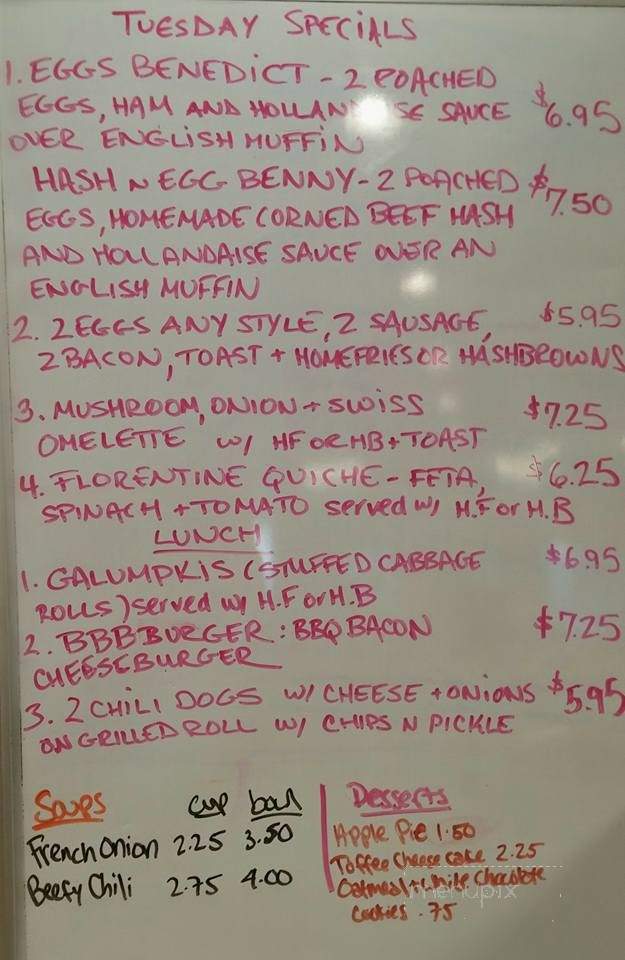 TUESDAY SPECIALS
1. EGGS BENEDICT - 2 POACHED
EGGS, HAM AND HOLLAN SE SAUCE $6.95
OVER ENGLISH MUFFIN
HASH N EGG BENNY - 2 POACHED $7.50
EGGS, HOMEMADE CORNED BEEF HASH
AND HOLLANDAISE SAUCE OVER AN
ENGLISH MUFFIN
2. 2 EGGS ANY STYLE, 2 SAUSAGE, $5.95
2 BACON, TOAST + HOMEFRIES OR HASHBROWNS
3. MUSHROOM, ONION + SWISS $7.25
OMELETTE w/ HF OR HB + TOAST
4. FLORENTINE QUICHE - FETA, $6.25
SPINACH + TOMATO served w/ H.F or H.B
LUNCH
1. GALUMPKIS (STUFFED CABBAGE $6.95
ROLLS) served w/ H.F or H.B
2. BBB BURGER: BBQ BACON $7.25
CHEESEBURGER
3. 2 CHILI DOGS w/ CHEESE + ONIONS $5.95
ON GRILLED ROLL w/ CHIPS N PICKLE
Soups cup bowl
French Onion 2.25 3.50
Beefy Chili 2.75 4.00
Desserts
Apple Pie 1.50
Toffee Cheese cake 2.25
Oatmeal + White Chocolate
Cookies .75
menupix